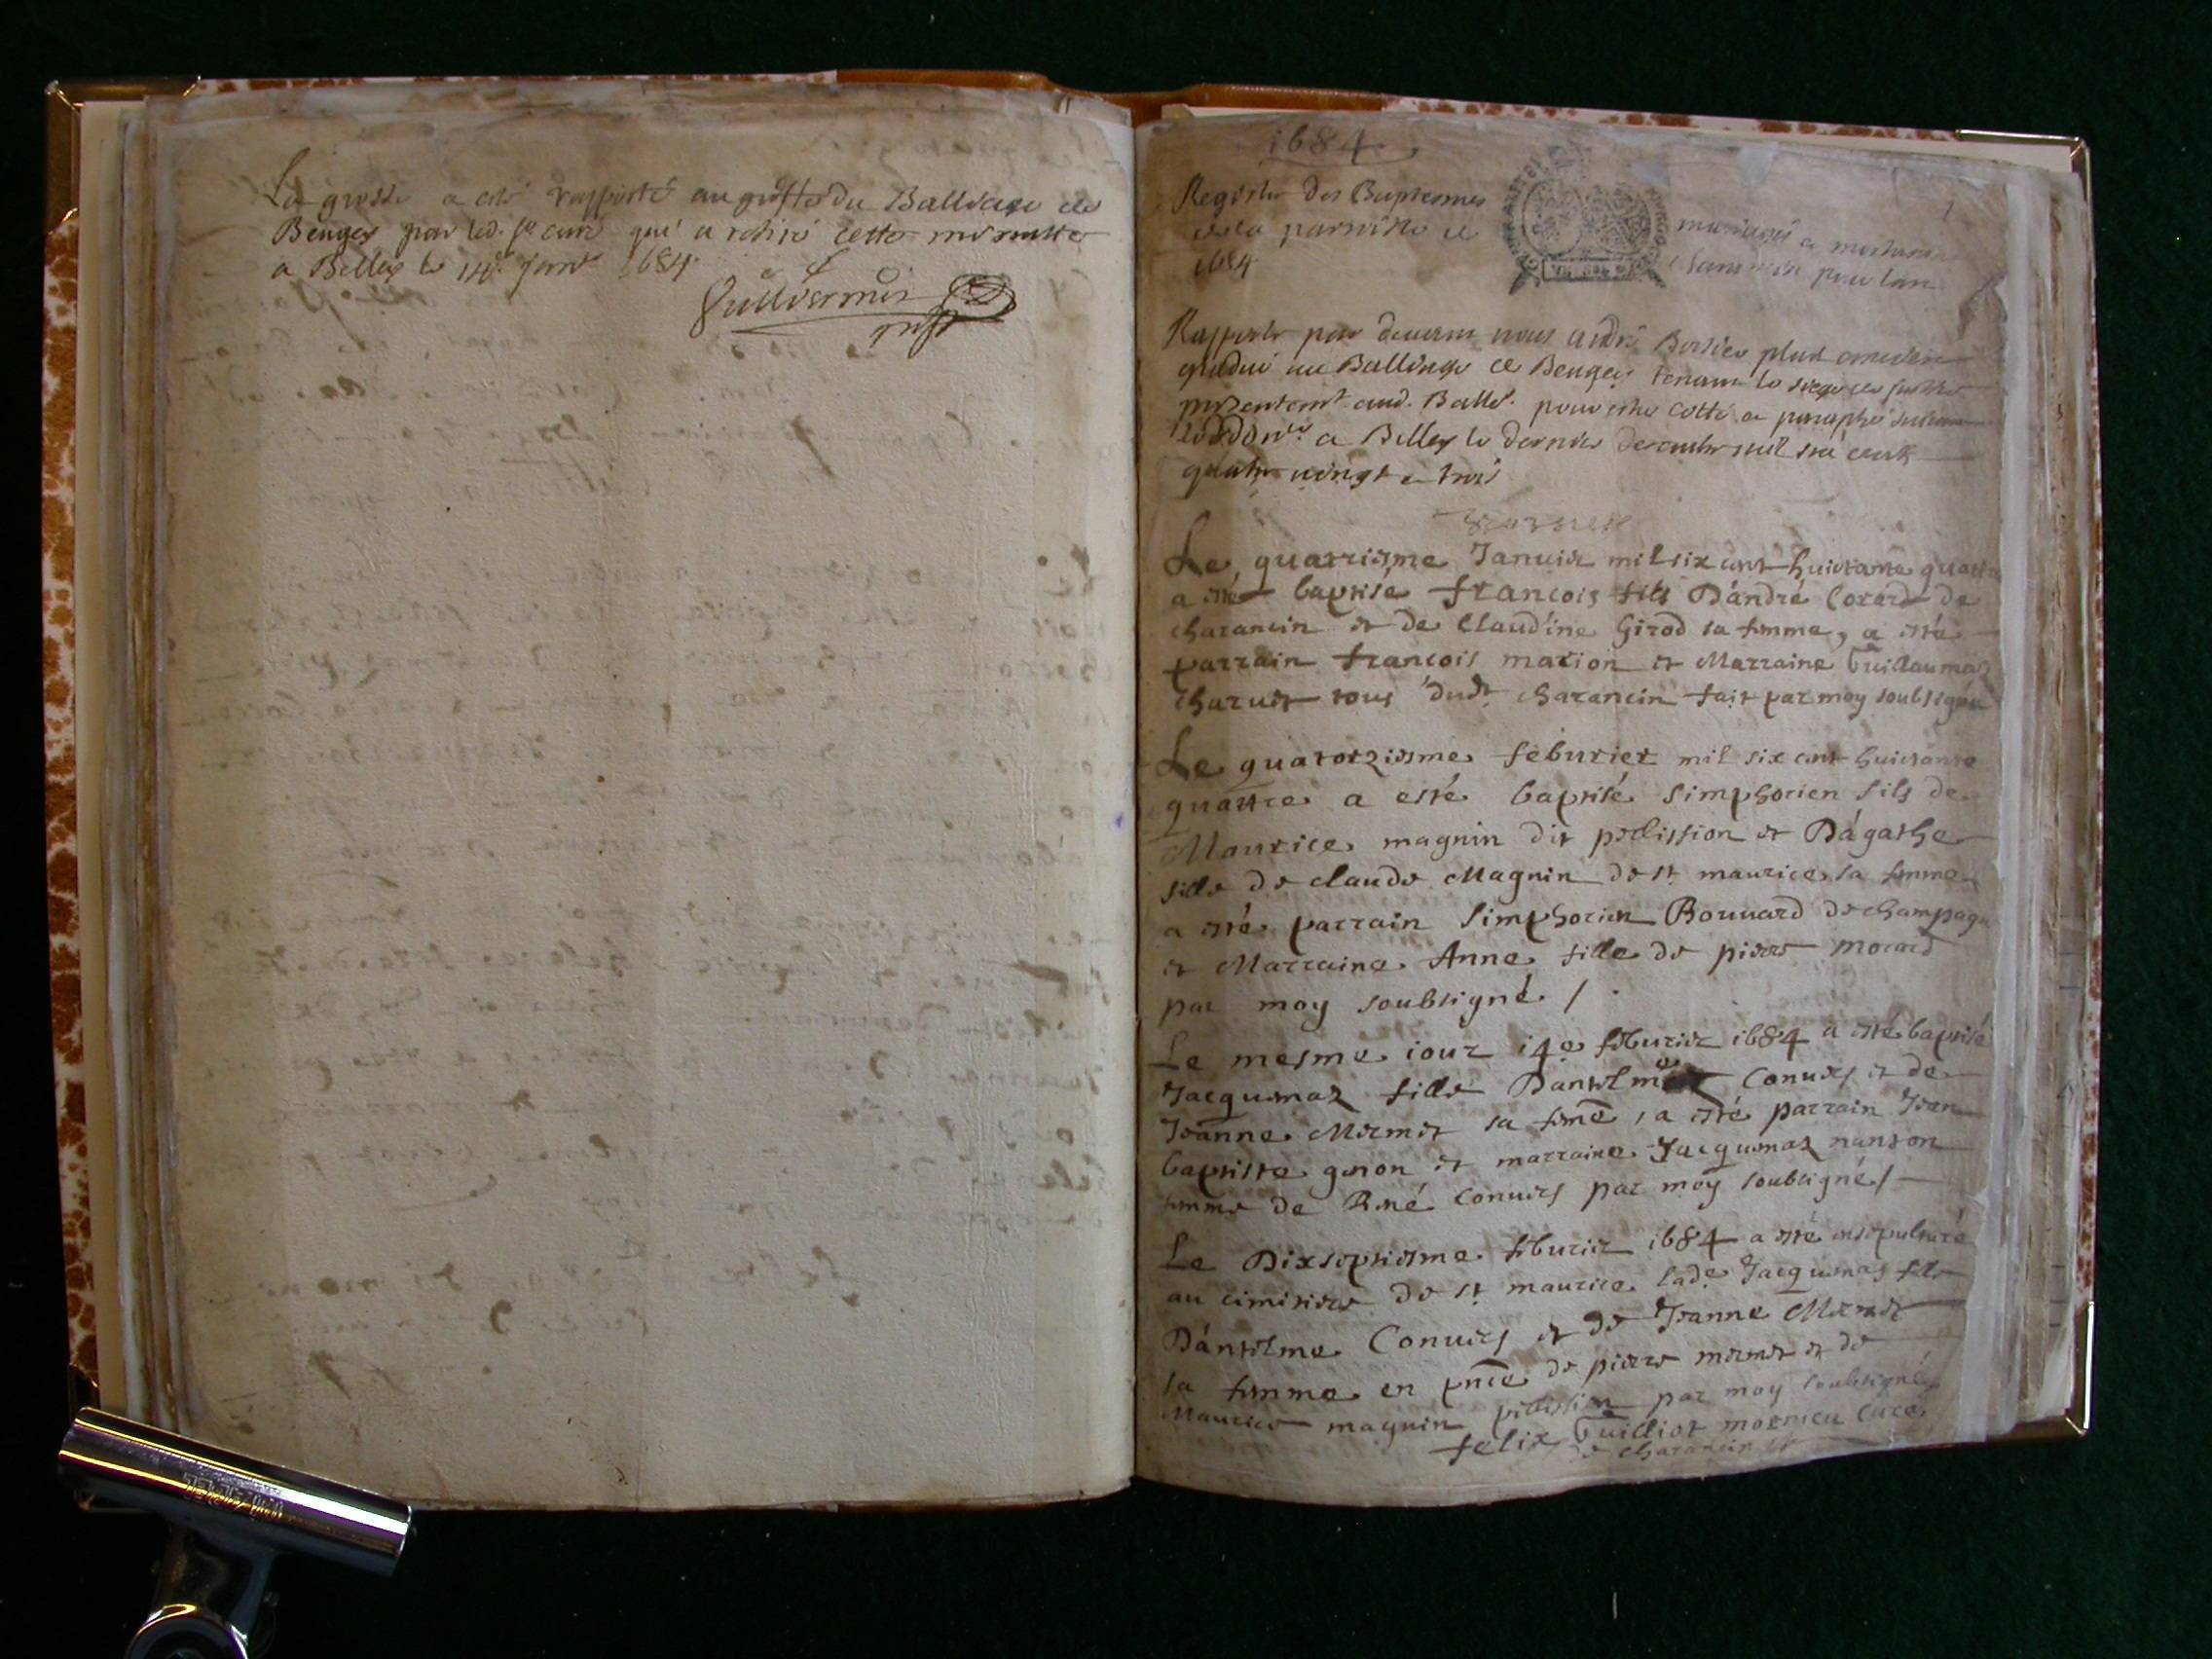 La grosse a esté rapporté au greffe du Balliage de
Beugey par led. sr curé qui a retiré cette minutte
a Belley le 14e Janr 1684
Guilliermin
1684
Registre des Baptesmes mariages et mortuaires
de la parroisse de Charancin pour lan
1684
Rapporté par devant nous André plus ancien
gradué au Balliage de Beugey tenant le siege
presentemt aud. Balle. pour estre cotté et paraphé suivant
a Belley le dernier decembre mil six cents
quatre vingt et trois
Le quatriesme Januier mil six cent huictante quattre
a esté baptisé francois fils D'andré Corard de
charancin et de Claudine Girod sa femme, a esté
parrain francois marion et Marraine Guillaumaz
charuet tous dudt charancin fait par moy soubsigné
Le quatorziesme feburier mil six cent huictante
quattre a esté baptisé simphorien fils de
Maurice magnin dit pellission et D'agathe
fille de claude Magnin de st maurice sa femme
a esté parrain simphorien Bouuard de champagne
et Marraine Anne fille de pierre morard
par moy soubsigné /
Le mesme iour 14e feburier 1684 a esté baptisé
Jacquemaz fille Dantelme Conuers et de
Jeanne Mermet sa feme, a esté parrain Jean
baptiste genon et marraine Jacquemaz nanton
femme de René Conuers par moy soubsigné /
Le Dixseptiesme feburier 1684 a esté ensepulturé
au cimitiere de st maurice lade Jacquemaz fille
D'antelme Conuers et de Jeanne Mermet
sa femme en pnce de pierre mermet et de
Maurice magnin pellission par moy soubsigné
felix Guilliot mornieu curé
de charancin